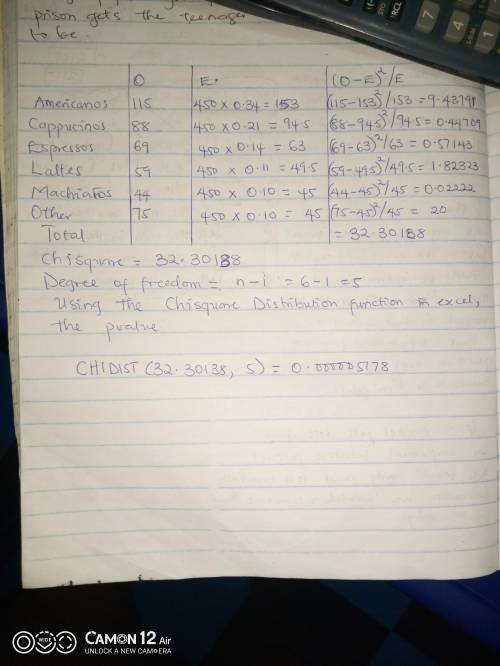 prison gets the teenager
to be.
O E. (O-E)²/E
Americanos 115 450 x 0.34 = 153 (115-153)²/153 = 9.43791
Cappucinos 88 450 x 0.21 = 945 (88-945)²/945 = 0.44709
Espressos 69 450 x 0.14 = 63 (69-63)²/63 = 0.57143
Lattes 59 450 x 0.11 = 495 (59-495)²/495 = 1.82323
Machiatos 44 450 x 0.10 = 45 (44-45)²/45 = 0.02222
Other 75 450 x 0.10 = 45 (75-45)²/45 = 20
Total = 32.30188
Chisquare = 32.30188
Degree of freedom = n-1 = 6-1 = 5
Using the Chisquare Distribution function in excel,
the pvalue
CHIDIST (32.30138, 5) = 0.000005178
CAMON 12 Air
UNLOCK A NEW CAMERA